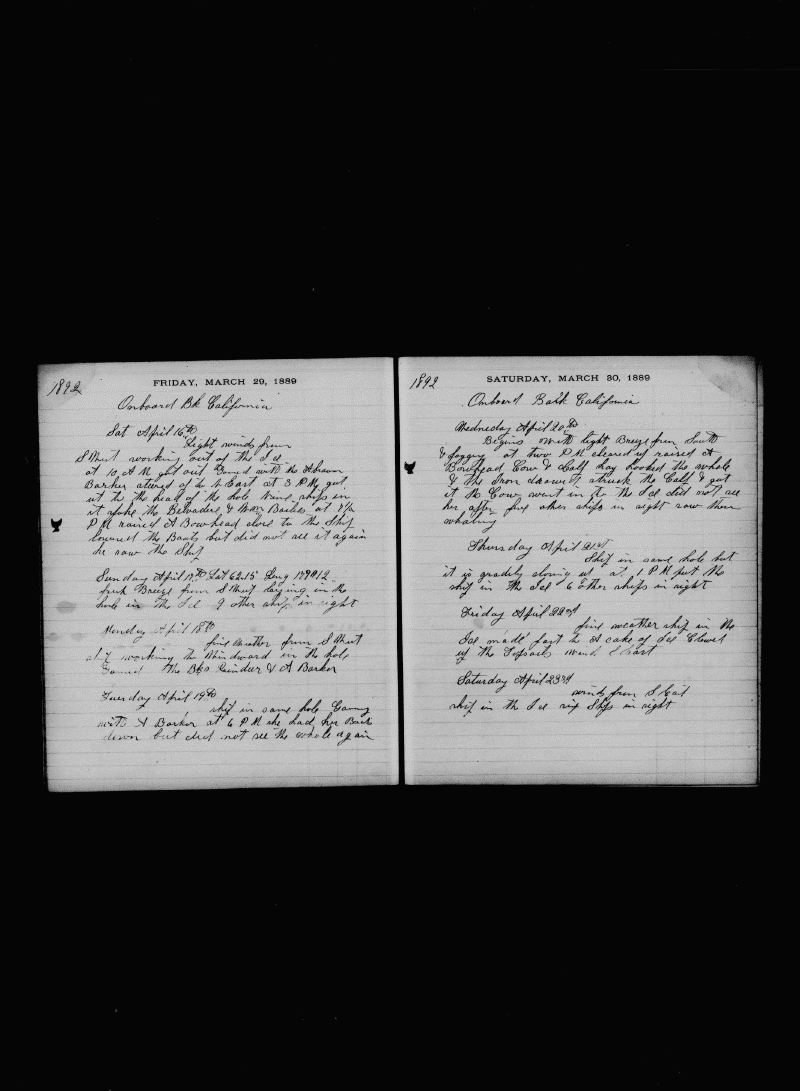 1892
FRIDAY, MARCH 29, 1889
Onboard Bk California
Sat April 16th
Light winds from
S West working out of the Ice
at 10 A M got out Gamed with the Abram
Barker steered N b East at 3 P M got
up to the head of the hole Nine ships in
it spoke the Belvedere & Wm Bailes at 3½
P M raised A Bowhead close to the Ship
lowered the Boats but did not see it again
he saw the Ship
Sunday April 17th Lat 62.15 Long 179012
fresh Breeze from S West laying in the
hole in the Ice 9 other ships in sight
Monday April 18th
fine Weather from S West
at 7 working the Windward in the hole
Gamed the Bks Reindeer & A Barker
Tuesday April 19th
ship in same hole Gaming
with A Barker at 6 P M she had her Boats
down but did not see the whale again
1892
SATURDAY, MARCH 30, 1889
Onboard Bark California
Wednesday April 20th
Begins with light Breeze from South
& foggy at two P M cleared up raised A
Bowhead Cow & Calf hay hooked the whale
& the Iron struck the Calf & got
it the Cow went in to the Ice did not see
her after five other ships in sight saw them
whaling
Thursday April 21st
Ship in same hole but
it is gradely closing up at 1 P M put the
ship in the Ice 6 other ships in sight
Friday April 22nd
fine weather ship in the
Ice made fast to A cake of Ice Clewed
up the Topsails wind S East
Saturday April 23rd
winds from S East
ship in the Ice six Ships in sight